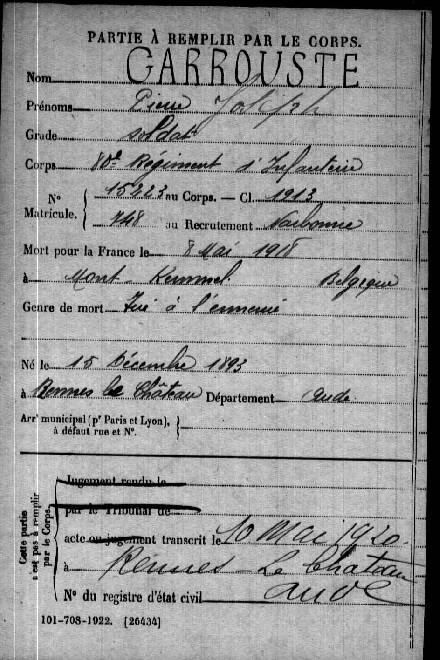 PARTIE À REMPLIR PAR LE CORPS.
Nom GARROUSTE
Prénoms Pierre Joseph
Grade soldat
Corps 80e Régiment d'Infanterie
N° Matricule. { 15223 au Corps. — Cl. 1913
748 au Recrutement Narbonne
Mort pour la France le 8 Mai 1918
à Mont Kemmel Belgique
Genre de mort Tué à l'ennemi
Né le 15 Décembre 1893
à Rennes le Château Département Aude
Arrt municipal (pr Paris et Lyon), à défaut rue et N°.
Cette partie n'est pas à remplir par le Corps.
Jugement rendu le
par le Tribunal de
acte ou jugement transcrit le 10 Mai 1920
à Rennes Le Château
Aude
N° du registre d'état civil
101-708-1922. [26434]